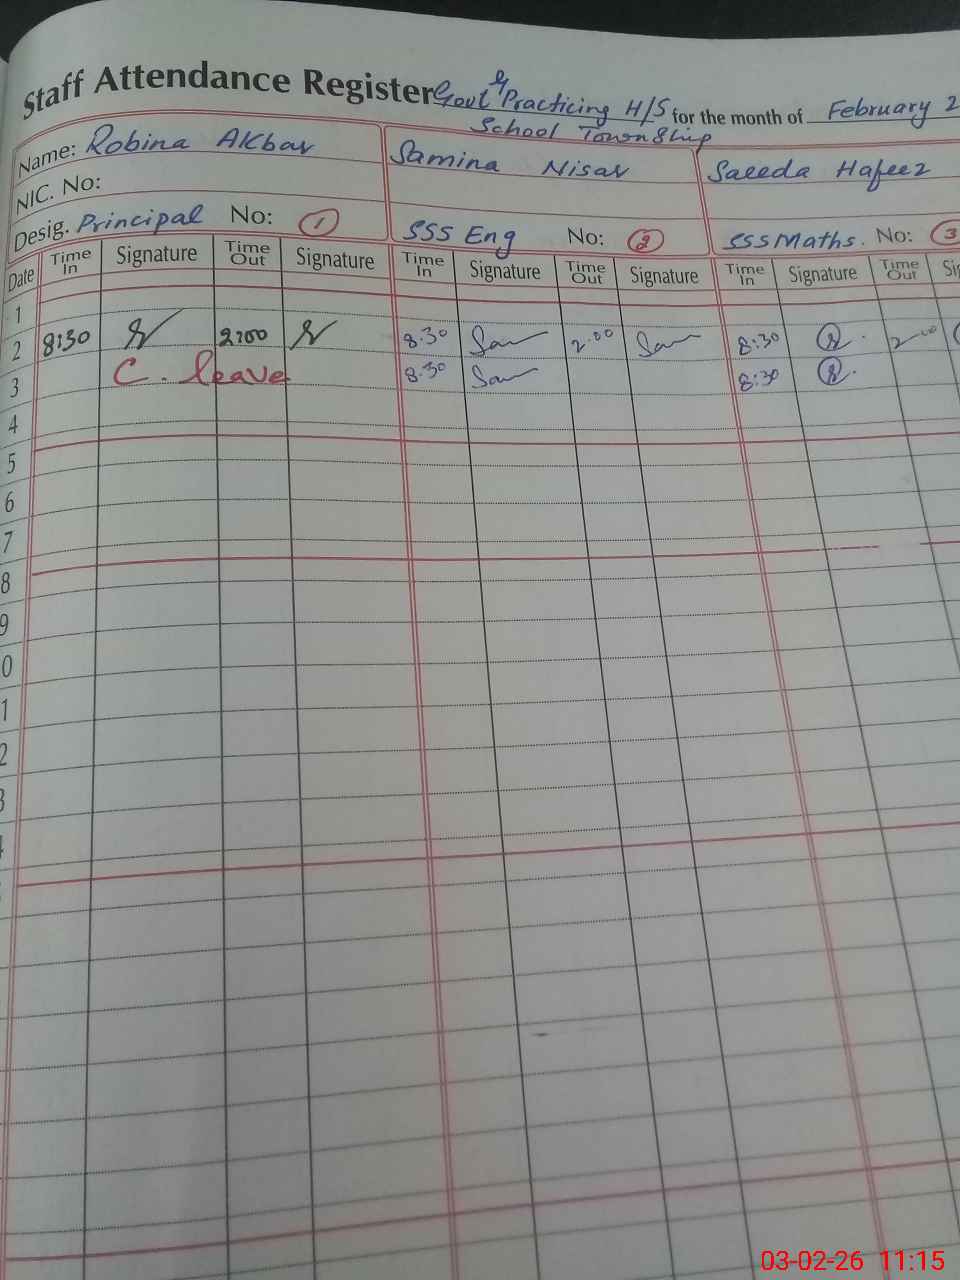 Staff Attendance Register Govt G Practicing H/S for the month of February 2
School Township
Name: Robina Akbar Samina Nisar Saeeda Hafeez
NIC. No:
Desig. Principal No: 1 SSS Eng No: 2 SSS Maths. No: 3
Date Time In Signature Time Out Signature Time In Signature Time Out Signature Time In Signature Time Out Sig
1
2 8:30 2:00 8:30 Sam 2.00 Sam 8:30 2.00
3 C. leave 8:30 Sam 8:30
4
5
6
7
8
9
0
1
2
3
4
03-02-26 11:15